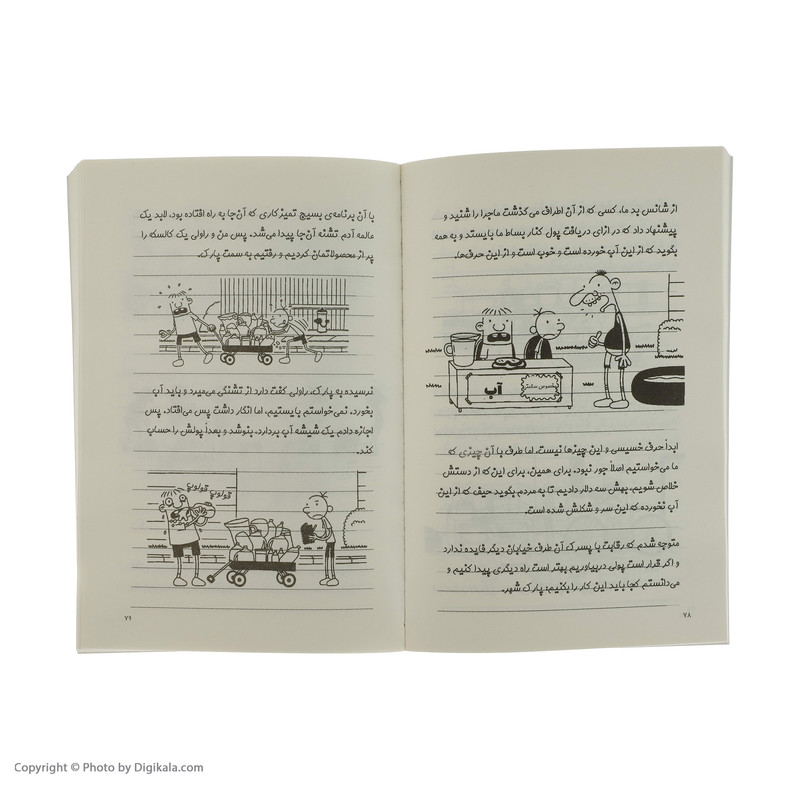 از شانس بد ما، کسی که از آن اطراف می‌گذشت ماجرا را شنید و
پیشنهاد داد که در ازای دریافت پول کنار بساط ما بایستد و به همه
بگوید که از این آب خورده است و خوب است و از این حرف‌ها.
آب
مخصوص سلامتی
ابداً حرف خسیسی و این چیزها نیست، اما طرف با آن چیزی که
ما می‌خواستیم اصلاً جور نبود. برای همین، برای این‌که از دستش
خلاص شویم، بهش سه دلار دادیم تا به مردم بگوید حیف که از این
آب نخورده که این سر و شکلش شده است.
متوجه شدم که رقابت با پسرک آن طرف خیابان دیگر فایده ندارد
و اگر قرار است پولی دربیاوریم بهتر است راه دیگری پیدا کنیم و
می‌دانستم کجا باید این کار را بکنیم: پارک شهر.
۷۸
با آن برنامه‌ی بسیج تمیزکاری که آن‌جا به راه افتاده بود، لابد یک
عالمه آدم تشنه آن‌جا پیدا می‌شد. پس من و راولی یک کالسکه را
پر از محصولاتمان کردیم و رفتیم به سمت پارک.
نرسیده به پارک، راولی گفت دارد از تشنگی می‌میرد و باید آب
بخورد. نمی‌خواستم بایستیم، اما انگار داشت پس می‌افتاد. پس
اجازه دادم یک شیشه آب بردارد، بنوشد و بعداً پولش را حساب
کند.
قولوپ قولوپ
۷۹
Copyright © Photo by Digikala.com